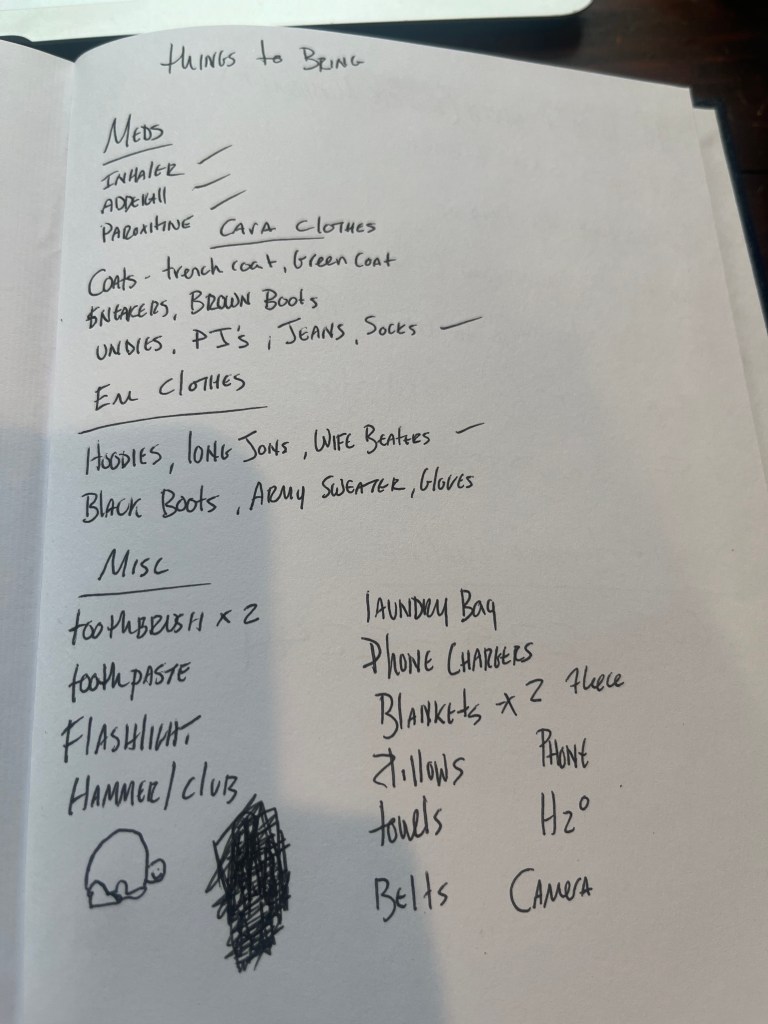 things to Bring
Meds
INHALER
ADDERALL
PAROXITINE
CARA Clothes
COATS - trench coat, Green Coat
SNEAKERS, BROWN Boots
UNDIES, PJ's, JEANS, Socks
Em Clothes
HOODIES, long Jons, WIFE BEATERS
Black Boots, ARMY SWEATER, Gloves
Misc
toothBRUSH x 2
toothPASTE
FLASHLIGHT
HAMMER/CLUB
LAUNDRY Bag
PHONE CHARGERS
BLANKEts x 2 fleece
Pillows
PHONE
towels
H2O
Belts
CAMERA